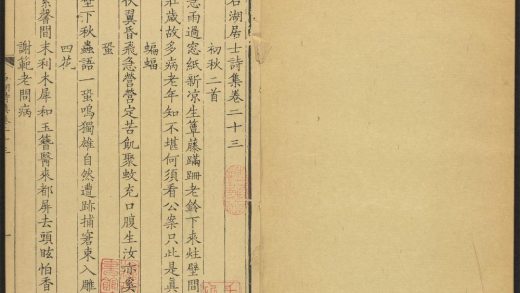 石湖居士詩集卷二十三
初秋二首
急雨過窓紙新凉生簟藤蹣跚老鈴下來炷壁間
壯歲故多病老年知不堪何須看公案只此是真
蝙蝠
伏翼昏飛急營營定苦飢聚蚊充口腹生汝亦奚
蛩
壁下秋蟲語一蛩鳴獨雄自然遭跡捕窘束入雕
四花
素馨間末利木犀和玉簪醫來都屏去頭眩怕香
謝範老問病